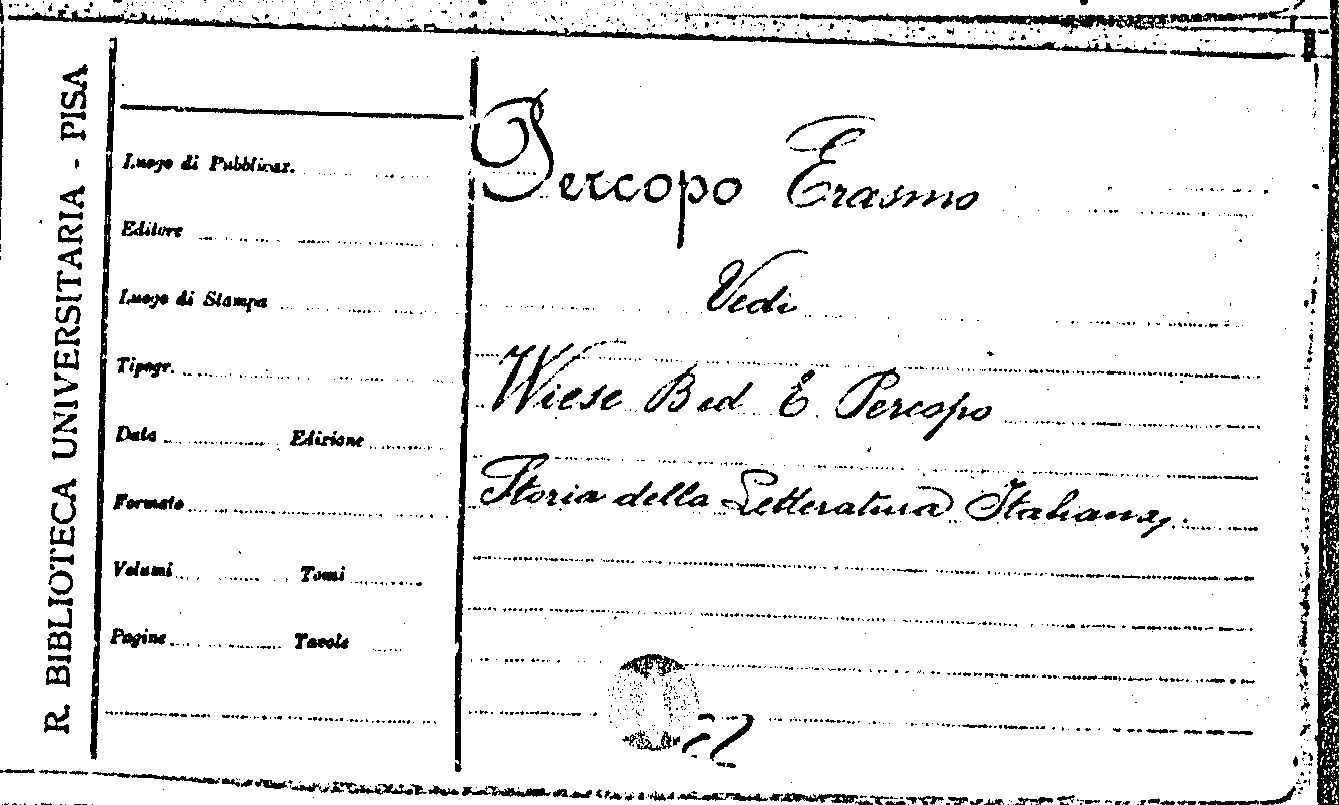 R. BIBLIOTECA UNIVERSITARIA - PISA
Luogo di Pubblicaz.
Editore
Luogo di Stampa
Tipogr.
Data Edizione
Formato
Volumi Tomi
Pagine Tavole
Percopo Erasmo
Vedi
Wiese B ed E Percopo
Storia della Letteratura Italiana,